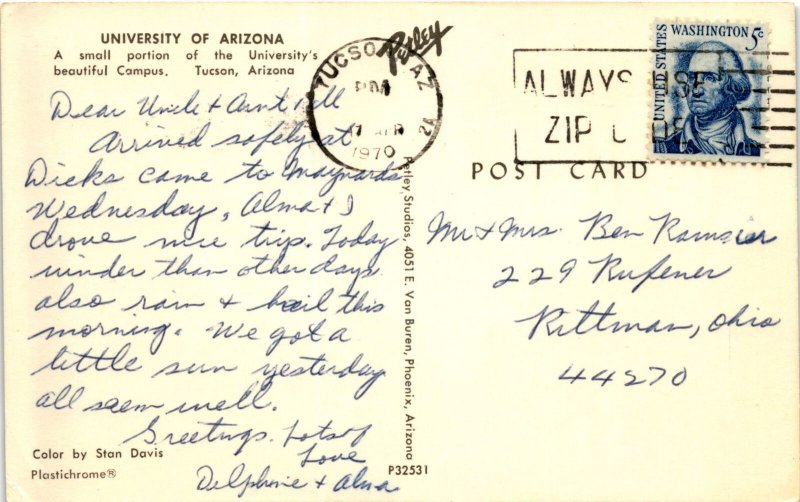 UNIVERSITY OF ARIZONA
A small portion of the University's
beautiful Campus. Tucson, Arizona
Dear Uncle & Aunt & all
Arrived safely at
Dicks came to Maynards
Wednesday, Alma & I
drove nice trip. Today
winder than other days
also rain & hail this
morning. We got a
little sun yesterday
all seem well.
Greetings. Lots of
Love
Delphine & Alma
Color by Stan Davis
Plastichrome®
P32531
Petley
Petley Studios, 4051 E. Van Buren, Phoenix, Arizona
TUCSON AZ
PM
APR
1970
ALWAYS USE
ZIP CODE
UNITED STATES
WASHINGTON 5c
POST CARD
Mr & Mrs. Ben Ramsier
229 Rufener
Rittman, Ohio
44270